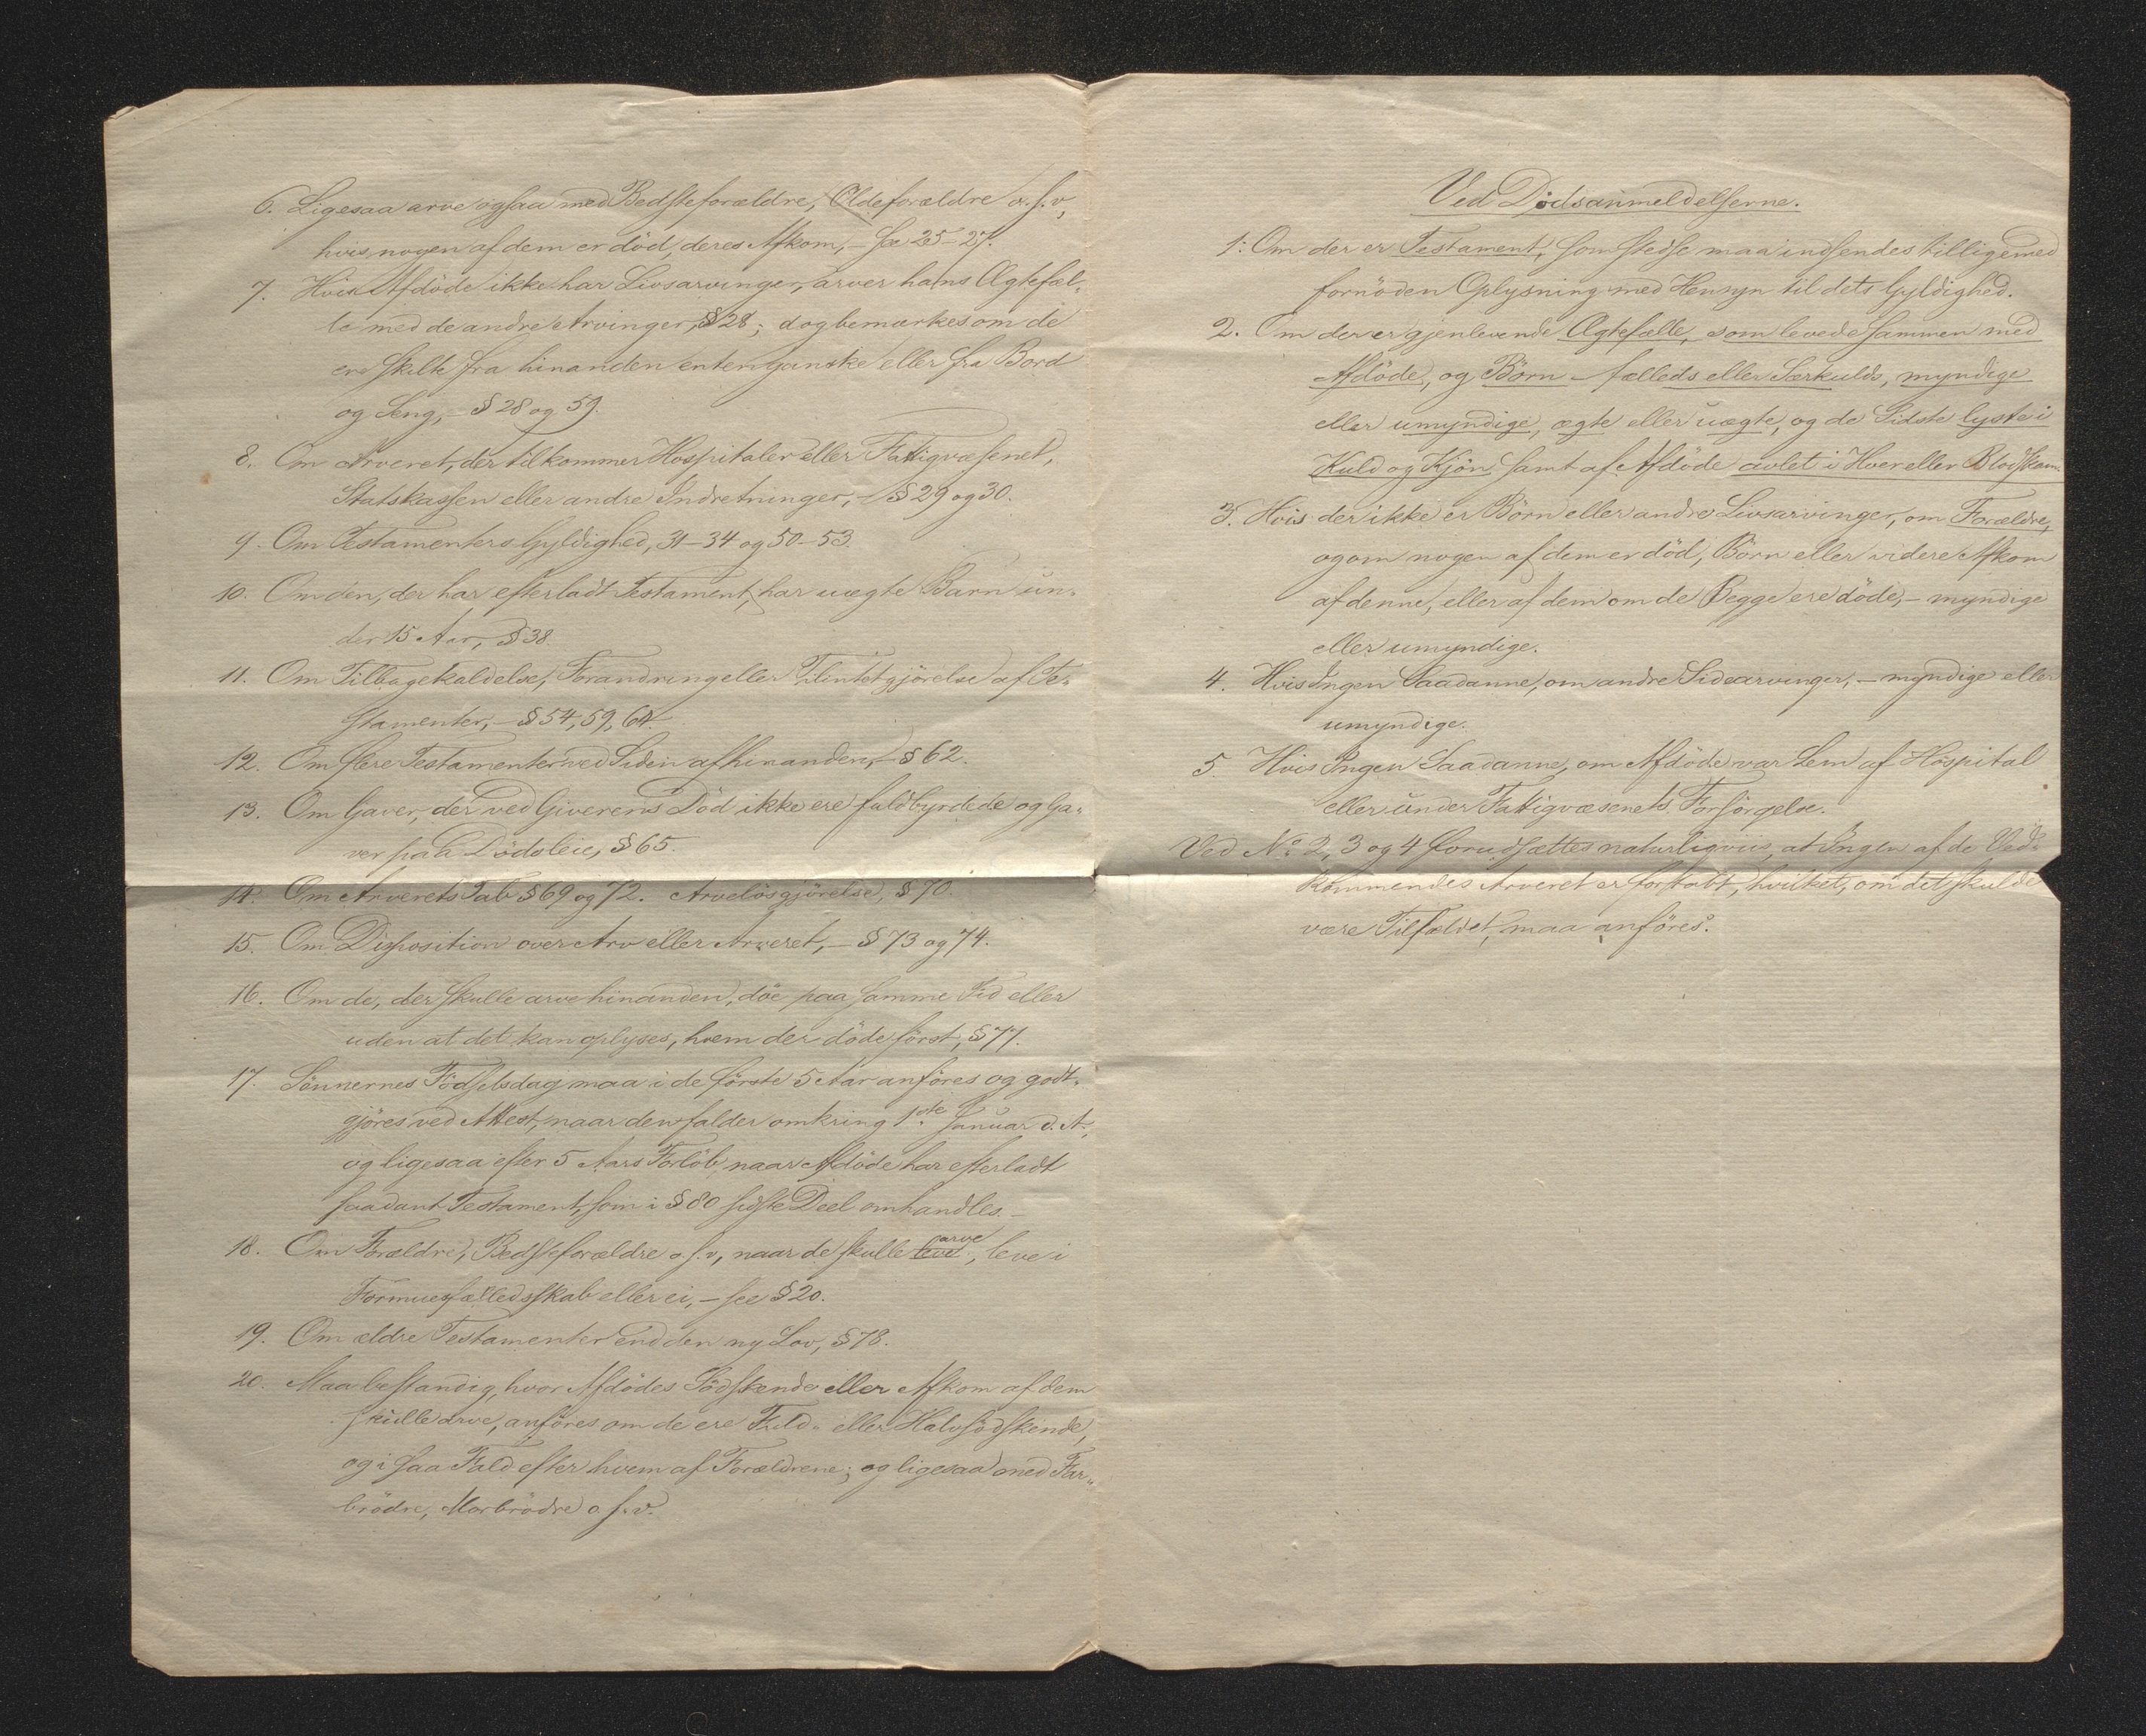 6. Ligesaa arve ogsaa med Bedsteforældre, Oldeforældre o. s. v,
hvis nogen af dem er död, deres Afkom, – see 25–27.
7. Hvis Afdöde ikke har Livsarvinger, arver hans Ægtefæl-
le med de andre Arvinger, § 28; dog bemærkes om de
ere skilte fra hinanden enten ganske eller fra Bord
og Seng, – § 28 og 59.
8. Om Arveret, der tilkommer Hospitaler eller Fattigvæsenet,
Statskassen eller andre Indretninger, – § 29 og 30.
9. Om Testamenters Gyldighed, 31–34 og 50–53.
10. Om den, der har efterladt Testament, har uægte Barn un-
der 15 Aar, § 38.
11. Om Tilbagekaldelse, Forandring eller Tilintetgjörelse af Te-
stamenter, – § 54, 59, 64
12. Om flere Testamenter ved Siden af hinanden, – § 62.
13. Om Gaver, der ved Giverens Död ikke ere fuldbyrdede og Ga-
ver paa Dödsleie, § 65.
14. Om Arverets Tab § 69 og 72. Arvelösgjörelse, § 70.
15. Om Disposition over Arv eller Arveret, – § 73 og 74.
16. Om de, der skulle arve hinanden, döe paa samme Tid eller
uden at det kan oplyses, hvem der döde först, § 77.
17. Sönnernes Födselsdag maa i de förste 5 Aar anföres og godt-
gjöres ved Attest, naar den falder omkring 1ste Januar d. A.,
og ligesaa efter 5 Aars Forlöb, naar Afdöde har efterladt
saadant Testament, som i § 80 sidste Deel omhandles. –
18. Om Forældre, Bedsteforældre o. s. v, naar de skulle leve arve, leve i
Formuesfælledsskab eller ei, – see § 20.
19. Om ældre Testamenter end den ny Lov, § 78.
20. Maa bestandig, hvor Afdödes Södskende eller Afkom af dem
skulle arve, anföres om de ere Fuld- eller Halvsödskende,
og i saa Fald efter hvem af Forældrene; og ligesaa med Far-
brödre, Morbrödre o. s. v.
Ved Dödsanmeldelserne.
1: Om der er Testament, som stedse maa indsendes tilligemed
fornöden Oplysning med Hensyn til dets Gyldighed.
2. Om der er gjenlevende Ægtefælle, som levede sammen med
Afdöde, og Börn – fælleds eller Særkulds, myndige
eller umyndige, ægte eller uægte, og de Sidste lyste i
Kuld og Kjön, samt af Afdöde avlet i Hoer eller Blodskam.
3. Hvis der ikke er Börn eller andre Livsarvinger, om Forældre,
og om nogen af dem er död, Börn eller videre Afkom
af denne, eller af dem om de Begge ere döde, – myndige
eller umyndige.
4. Hvis Ingen Saadanne, om andre Sidearvinger, – myndige eller
umyndige.
5. Hvis Ingen Saadanne, om Afdöde var Lem af Hospital
eller under Fattigvæsenets Forsörgelse.
Ved No 2, 3 og 4 forudsættes naturligviis, at Ingen af de Ved-
kommendes Arveret er fortabt, hvilket, om det skulde
være Tilfældet, maa anföres.